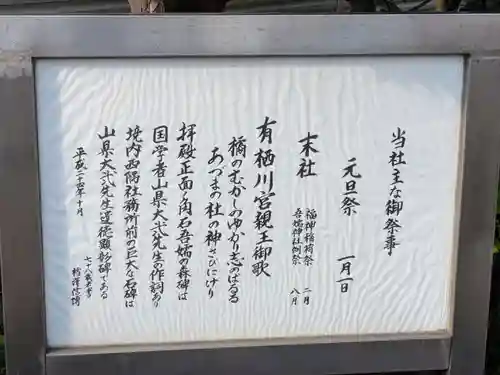 当社主な御祭事
元旦祭 一月一日
末社
福神稲荷祭 二月
吾嬬神社例祭 八月
有栖川宮親王御歌
橘のむかしのゆかり志のばるる
あつまの杜の神さびにけり
拝殿正面ノ角石吾嬬の森碑は
国学者山県大弐先生の作詞あり
境内西隅社務所前の巨大な石碑は
山県大弐先生道徳顕彰碑である
平成二十四年十月
七十八歳